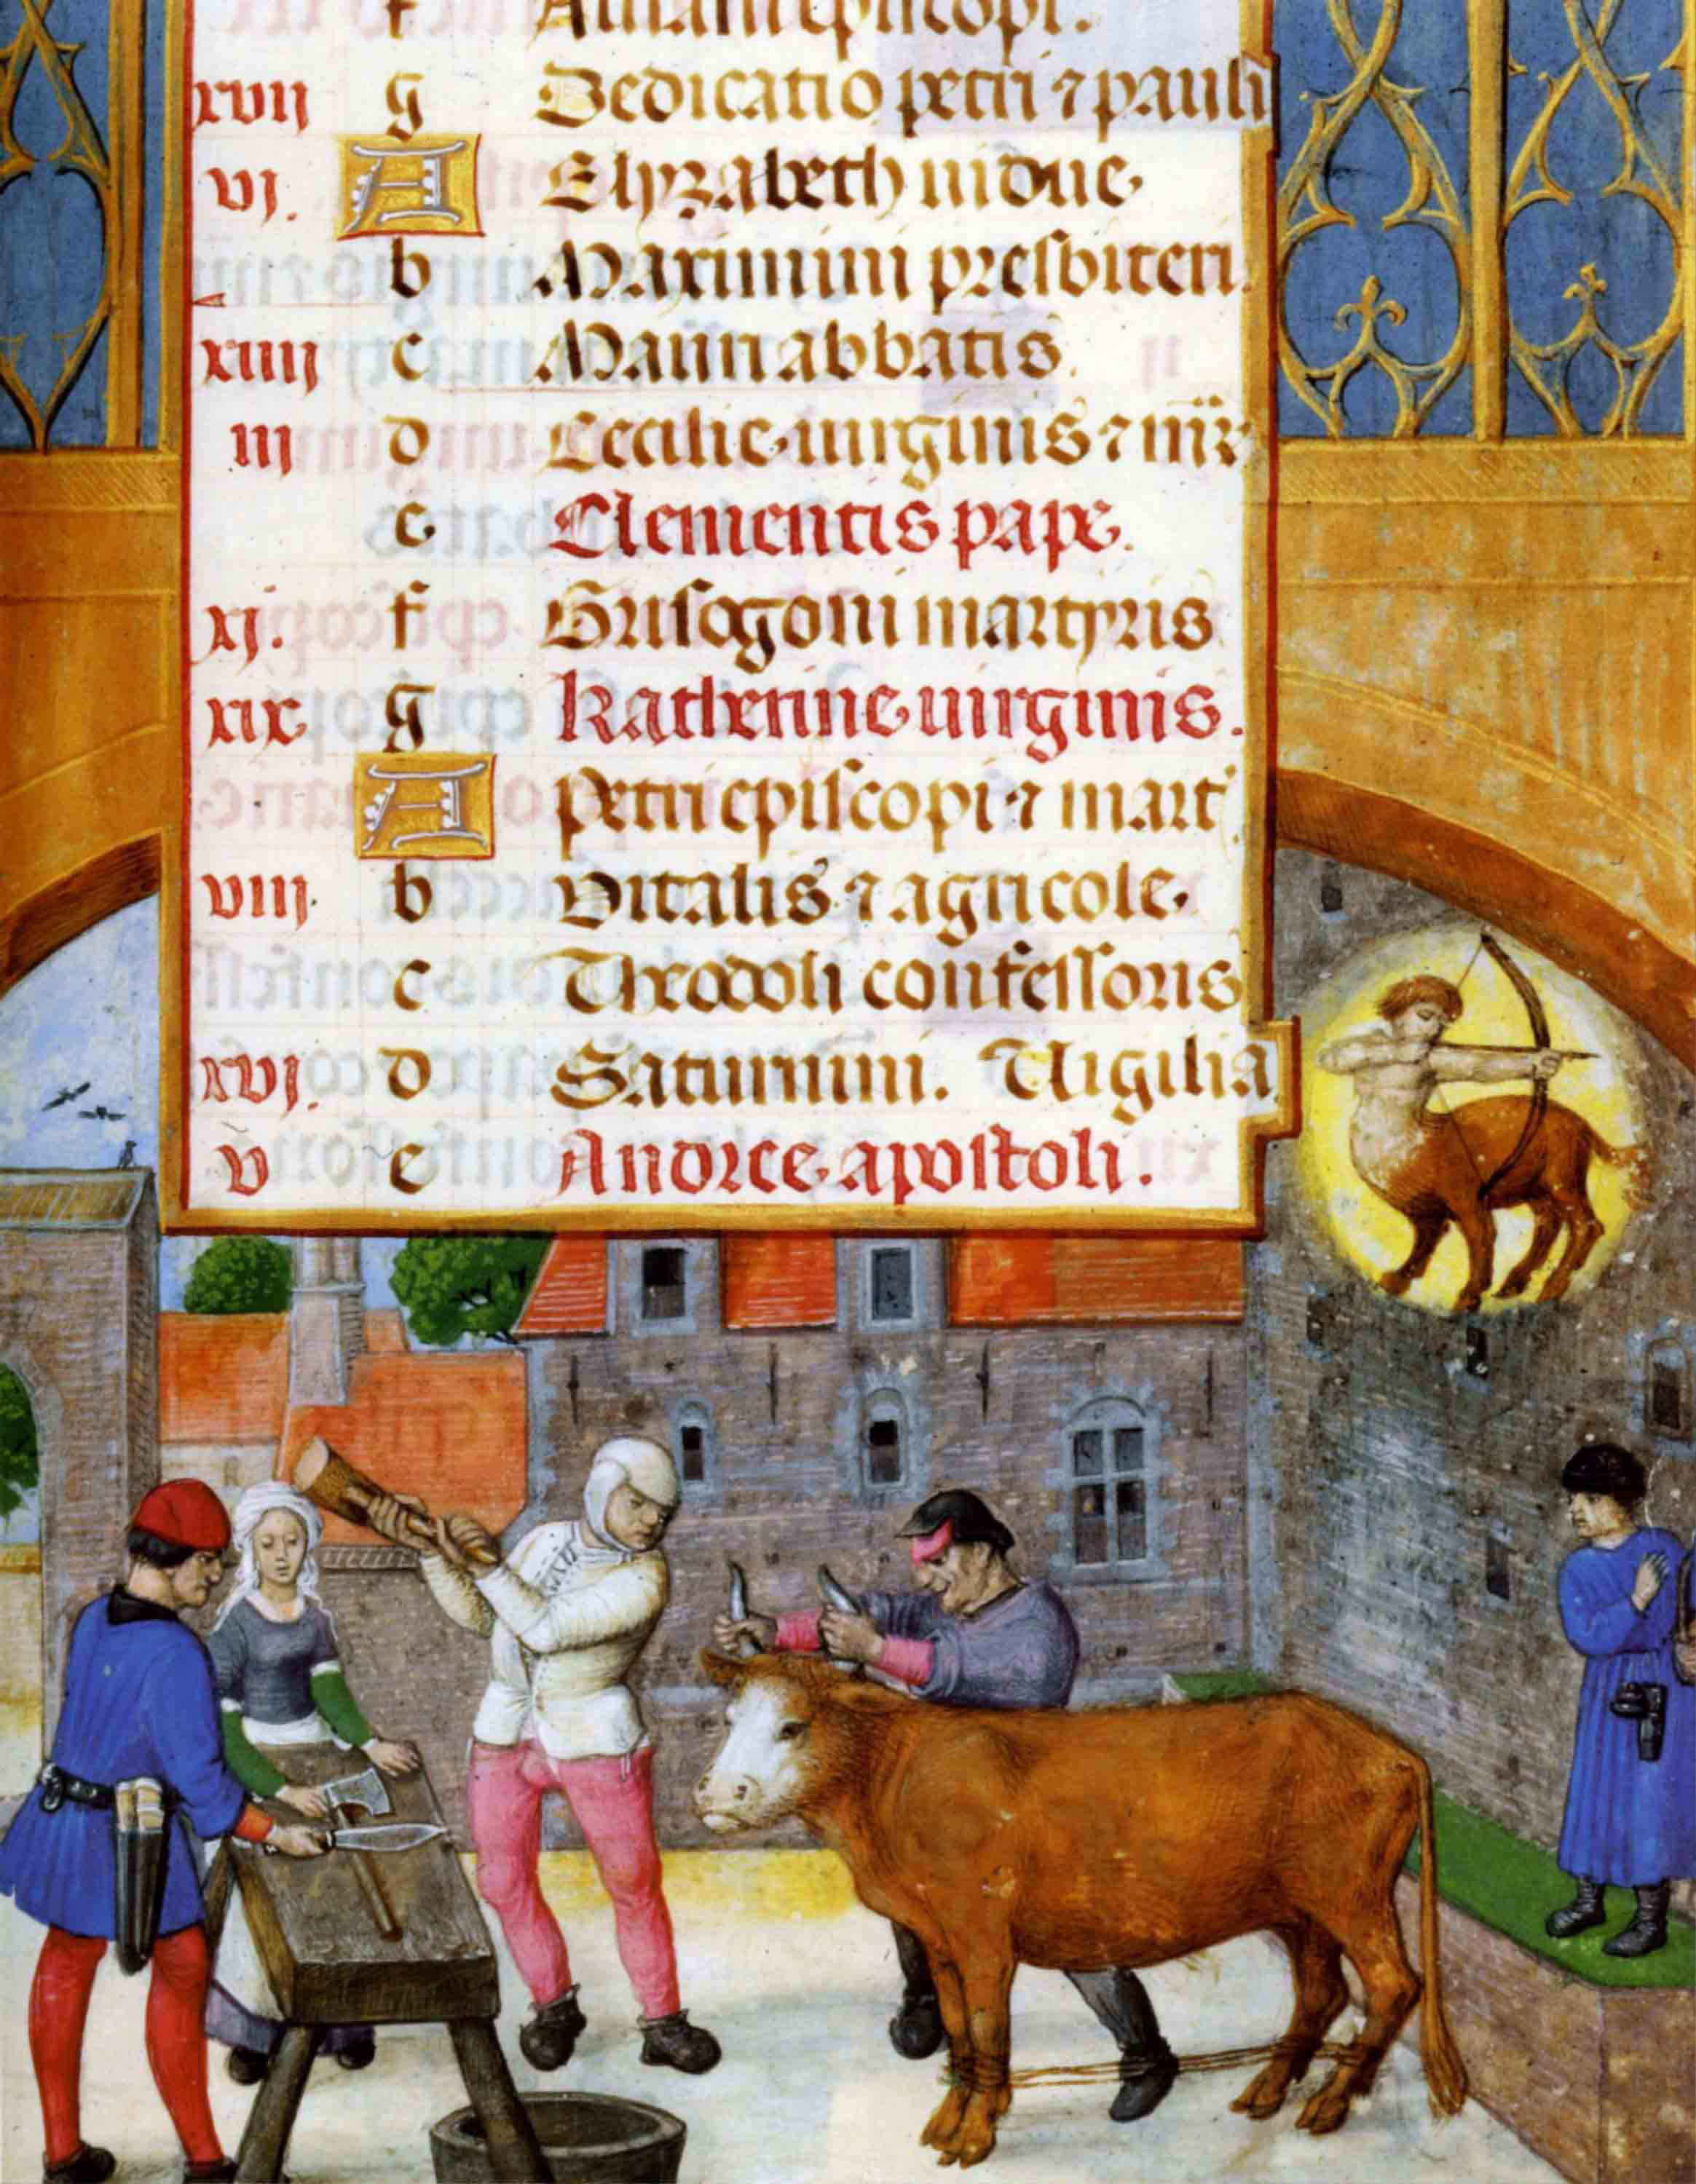 f Aniani episcopi.
xvij g Dedicatio petri ⁊ pauli
vj. A Elyzabeth uidue.
b Maximini presbiteri.
xiiij c Mauri abbatis.
iij d Cecilie uirginis ⁊ mr̄
e Clementis pape.
xj. f Grisogoni martyris
xix g Katherine uirginis.
A Petri episcopi ⁊ mart
viij. b Vitalis ⁊ agricole.
c Theodoli confessoris
xvj. d Saturnini. Vigilia
v e Andree apostoli.